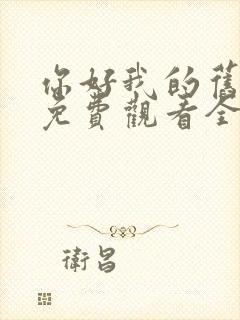 你好我的舊
免費觀看全
衛昌